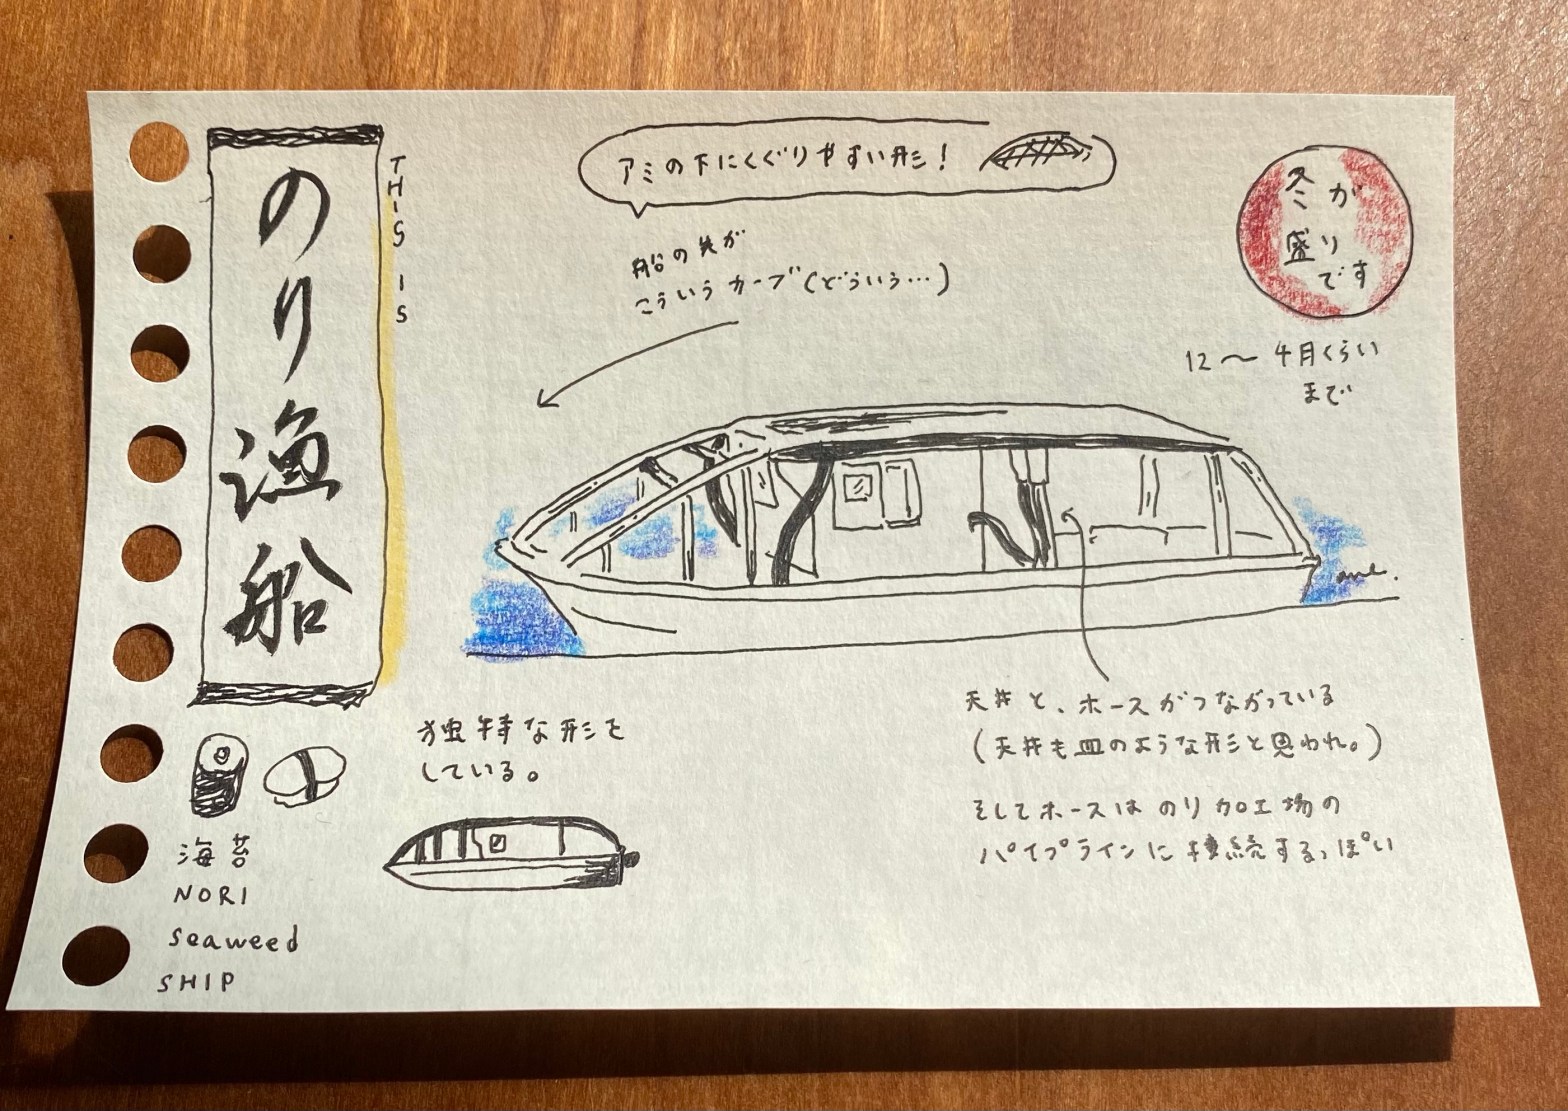 のり漁船
THIS IS
アミの下にくぐりやすい形!
船の先が
こういうカーブ(どういう…)
冬が
盛り
です
12〜4月くらい
まで
独特な形を
している。
天井と、ホースがつながっている
(天井も皿のような形と思われ。)
そしてホースはのり加工場の
パイプラインに接続するっぽい
海苔
NORI
seaweed
SHIP